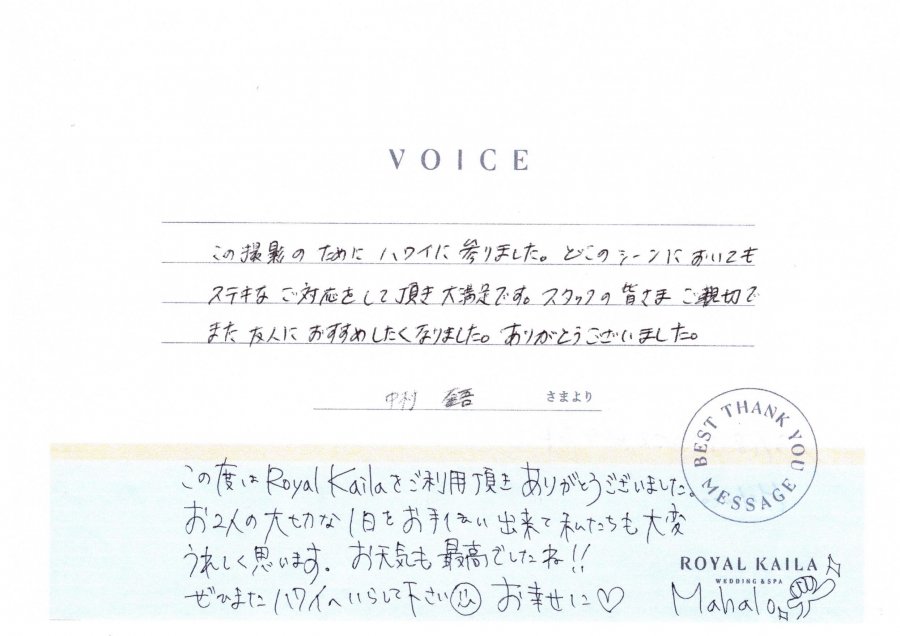 VOICE
この撮影のために ハワイに 参りました。どこのシーンに おいても
ステキな ご対応をして頂き 大満足です。スタッフの 皆さま ご親切で
また 友人に おすすめしたくなりました。ありがとうございました。
中村 さまより
BEST THANK YOU MESSAGE
この度は Royal Kailaをご利用頂き ありがとうございました。
お2人の大切な 1日を お手伝い 出来て 私たちも 大変
うれしく思います. お天気も 最高でしたね!!
ぜひまた ハワイへいらして下さい お幸せに♡
ROYAL KAILA
WEDDING & SPA
Mahalo